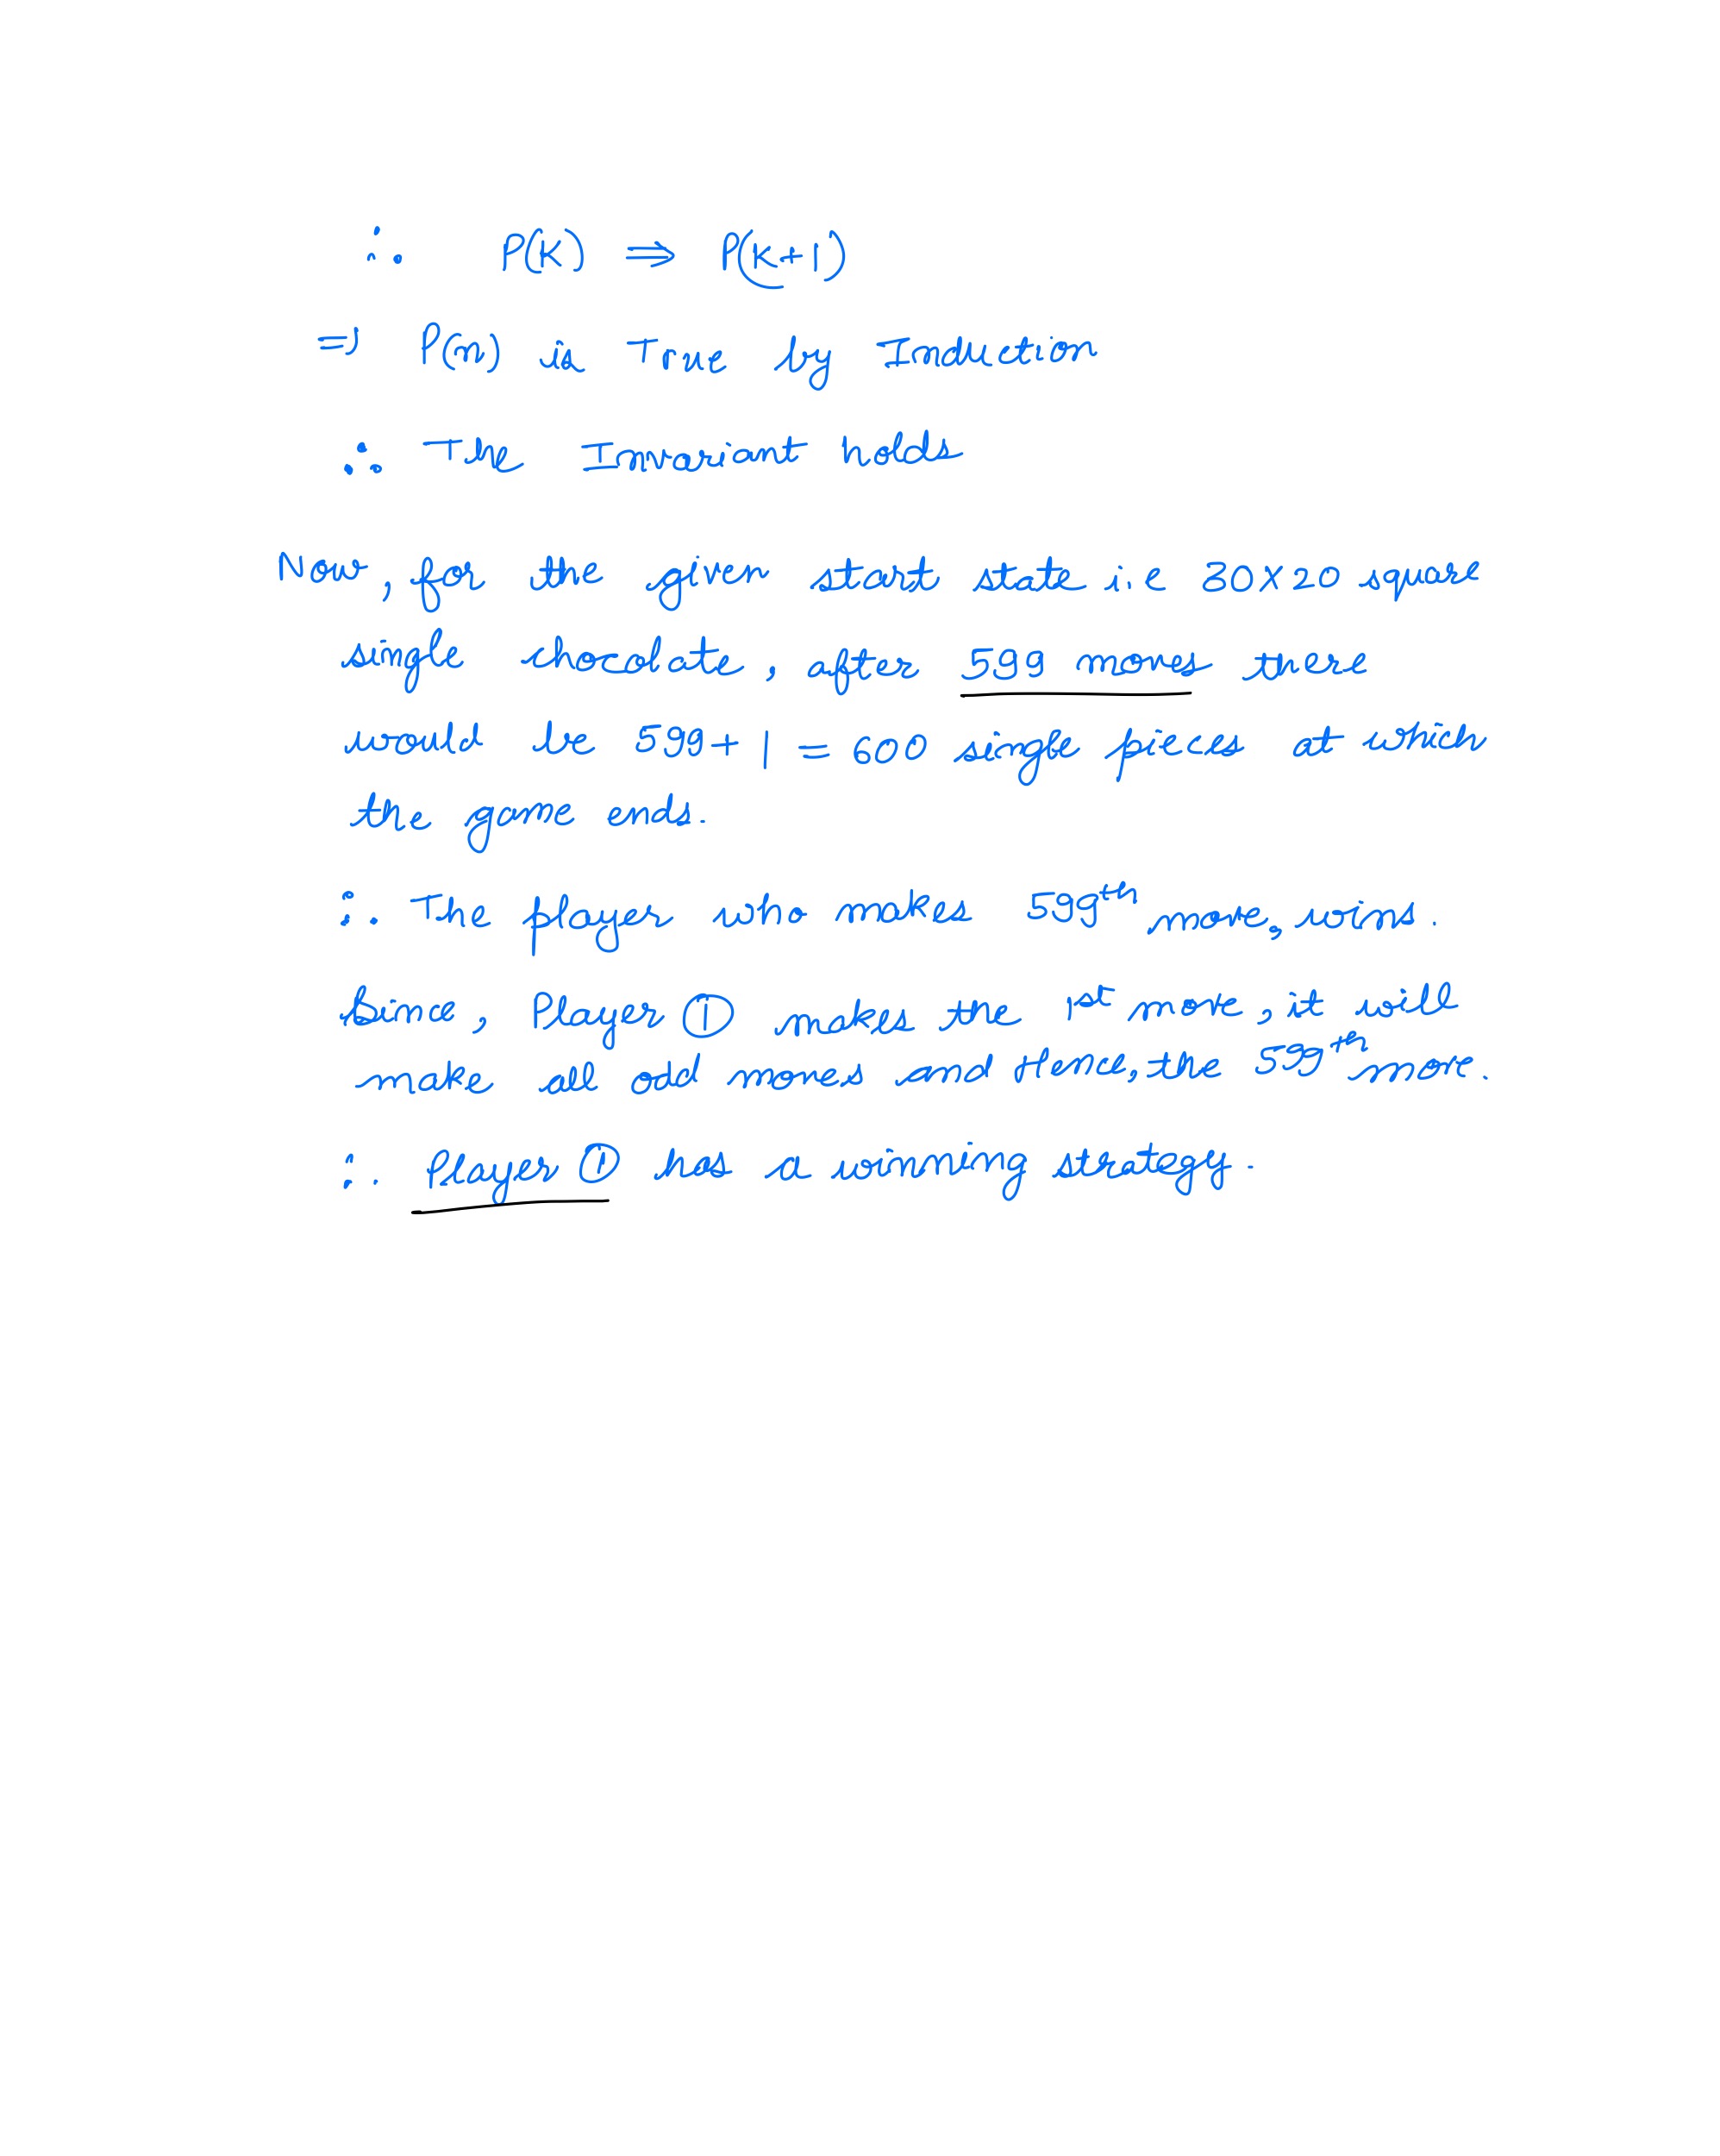 ∴ P(K) ⇒ P(K+1)
⇒ P(n) is True by Induction
∴ The Invariant holds
Now, for the given start state i.e 30×20 square
single chocolate, after 599 moves there
would be 599+1 = 600 single pieces at which
the game ends.
∴ The player who makes 599th move, wins.
Since, Player ① makes the 1st move, it will
make all odd moves and Hence, the 599th move.
∴ Player ① has a winning strategy.